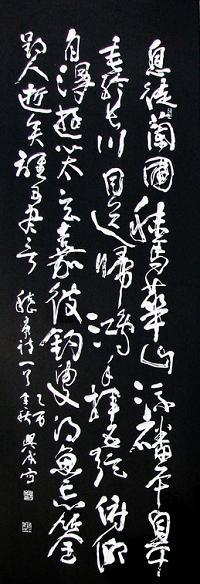 息徒蘭圃秣馬華山流磻平皋
垂綸長川目送歸鴻手揮五弦俯仰
自得游心太玄嘉彼釣叟得魚忘筌
郢人逝矣誰可盡言
嵇康詩一首